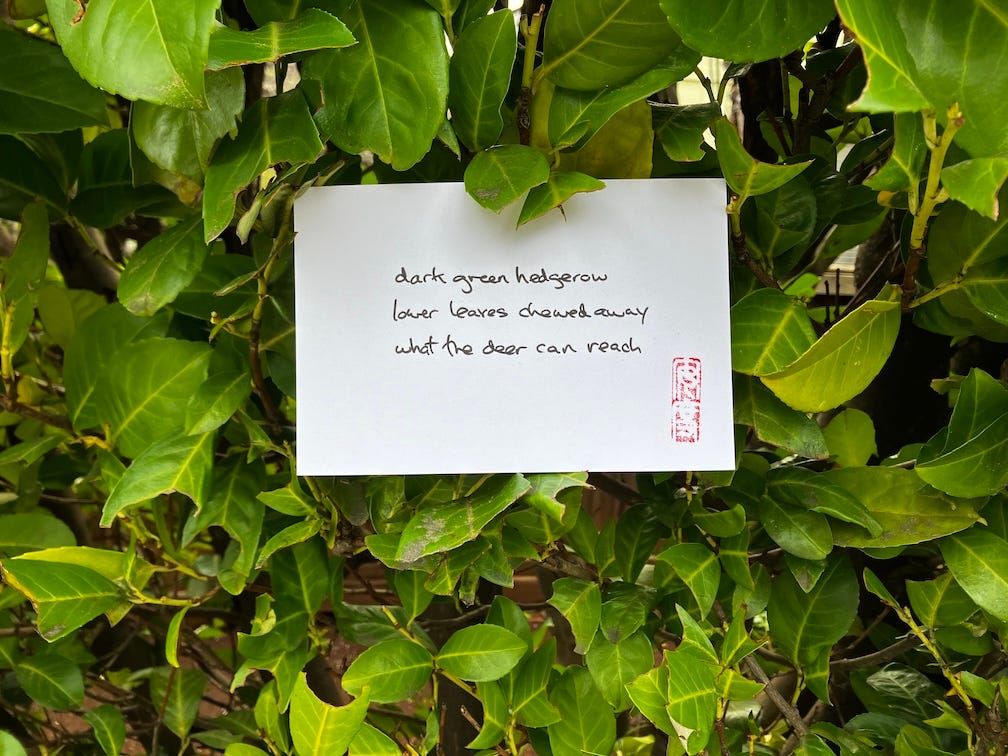 dark green hedgerow
lower leaves chewed away
what the deer can reach